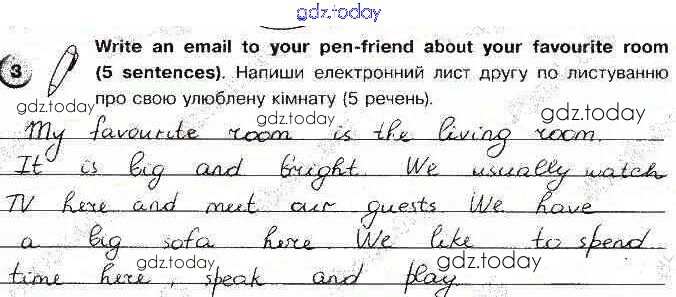 gdz.today
3 Write an email to your pen-friend about your favourite room
(5 sentences). Напиши електронний лист другу по листуванню
gdz.today
про свою улюблену кімнату (5 речень).
gdz.today gdz.today
My favourite room is the living room.
It is big and bright. We usually watch
TV here and meet our guests We have
a big sofa here We like to spend
gdz.today gdz.today
time here, speak and play.